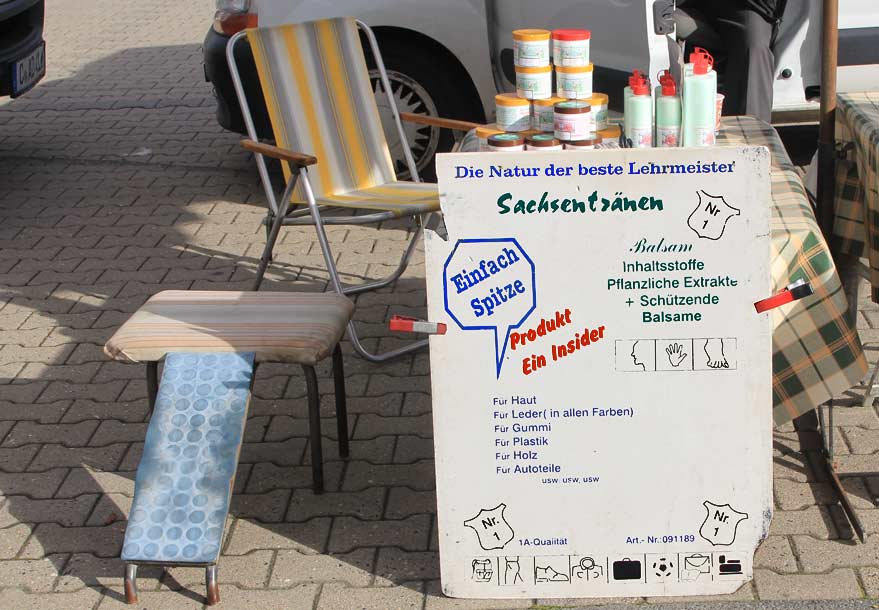 Die Natur der beste Lehrmeister
Sachsentränen
Nr
1
Balsam
Inhaltsstoffe
Pflanzliche Extrakte
+ Schützende
Balsame
Einfach
Spitze
Produkt
Ein Insider
Für Haut
Für Leder( in allen Farben)
Für Gummi
Für Plastik
Für Holz
Für Autoteile
usw, usw, usw
Nr.
1
1A-Qualität
Art.- Nr.:091189
Nr.
1